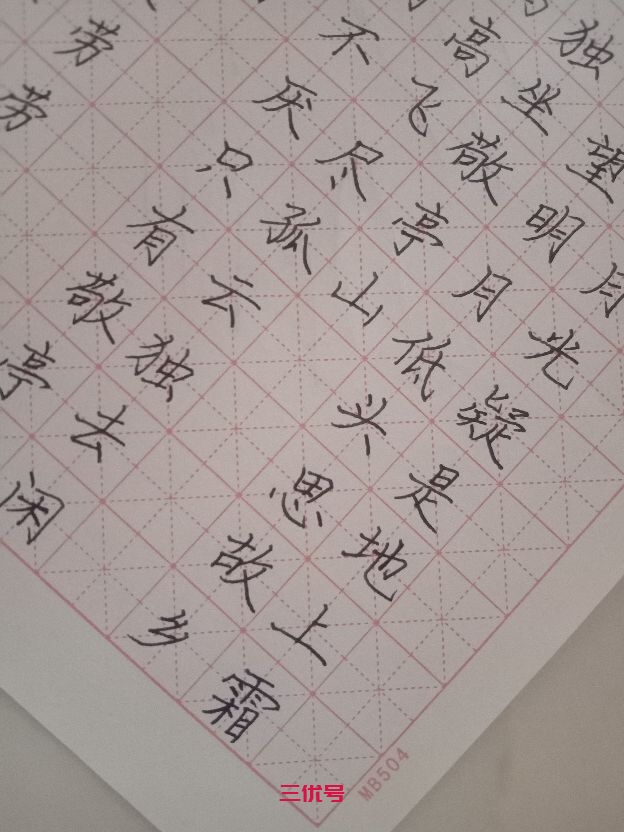 月光疑是地上霜
望明月低头思故乡
独坐敬亭山
高飞尽孤云独去闲
不厌只有敬亭
劳劳
MB504
三优号